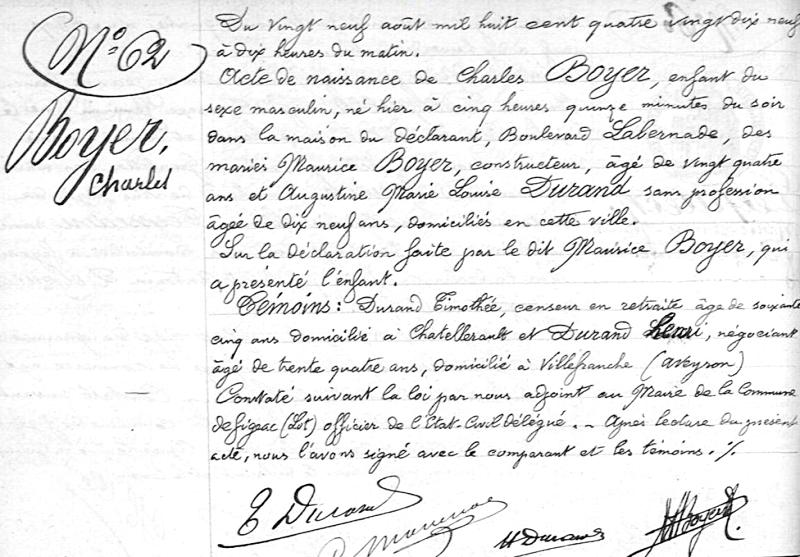 N° 62
Boyer,
Charles
Du vingt neuf août mil huit cent quatre vingt dix neuf
à dix heures du matin.
Acte de naissance de Charles Boyer, enfant du
sexe masculin, né hier à cinq heures quinze minutes du soir
dans la maison du déclarant, Boulevard Labernade, des
mariés Maurice Boyer, constructeur, âgé de vingt quatre
ans et Augustine Marie Louise Durand sans profession
âgée de dix neuf ans, domiciliés en cette ville.
Sur la déclaration faite par le dit Maurice Boyer, qui
a présenté l'enfant.
Témoins : Durand Timothée, censeur en retraite âgé de soixante
cinq ans domicilié à Chatellerault et Durand Henri, négociant
âgé de trente quatre ans, domicilié à Villefranche (Aveyron)
Constaté suivant la loi par nous adjoint au Maire de la Commune
de Figeac (Lot) officier de l'Etat-Civil délégué. _ Après lecture du présent
acte, nous l'avons signé avec le comparant et les témoins. %
T Durand
H Durand